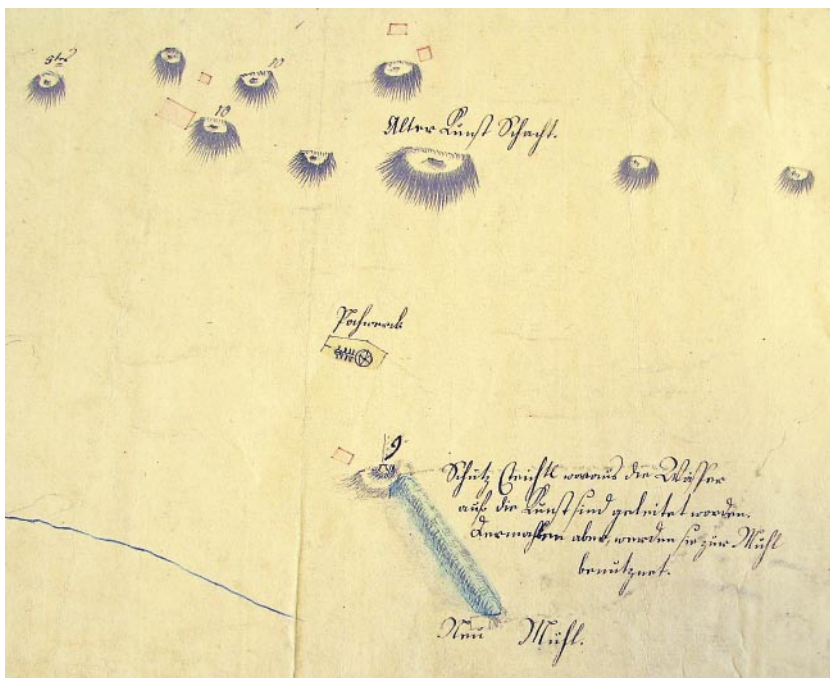 10
10
Alter Kunst Schacht.
Pochwerck
9
Schutz Teichtl woraus die Wasser
auf die Kunst sind geleitet worden.
Dermahlen aber, werden sie zur Mühl
benutznet.
Neu Mühl.